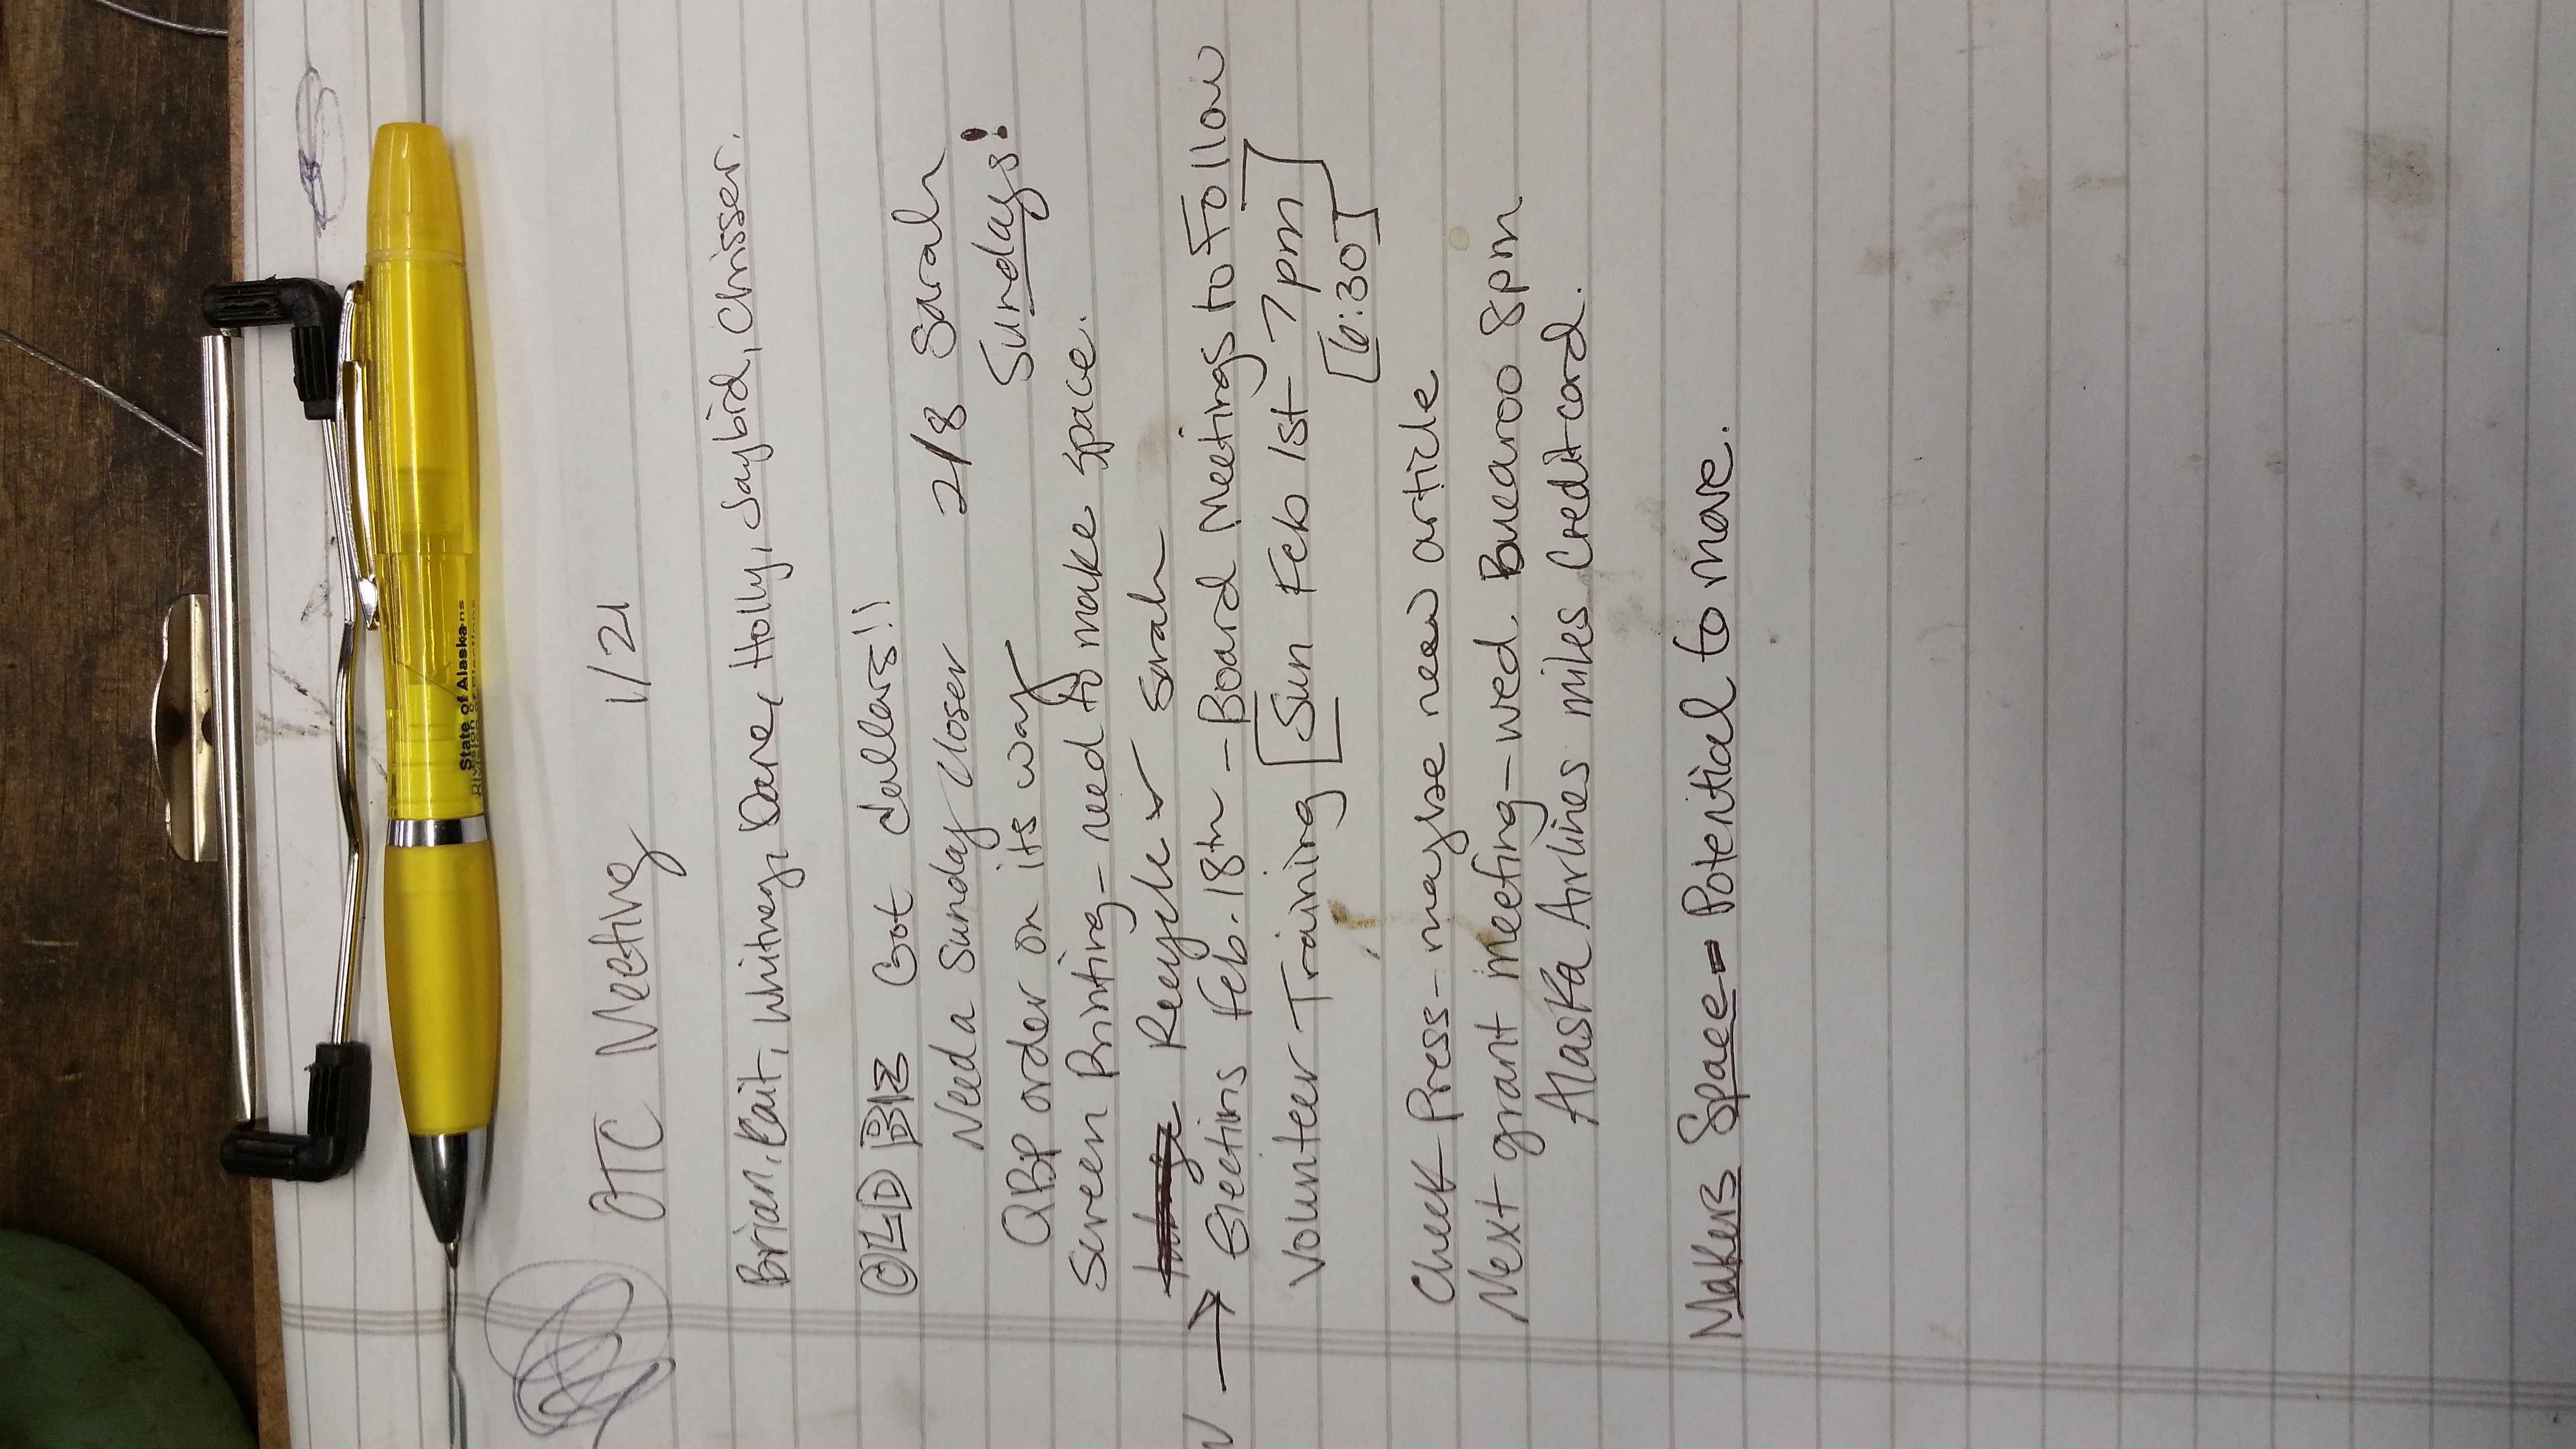 OTC Meeting 1/21
Brian, Kait, Whitney, Dane, Holly, Jaybird, Chrisser.
OLD BIZ Got dollars!!
Need a Sunday Closer 2/8 Sarah
QBP order on its way Sundays!
Screen Printing - need to make space.
Recycle ✓ Sarah
→ Elections Feb. 18th - Board Meetings to Follow
Volunteer Training [Sun Feb 1st 7pm]
[6:30]
Check Press - maybe new article
Next grant meeting - wed. Buearoo 8pm
Alaska Airlines miles Credit card.
Makers Space - Potential to move.
State of Alaska